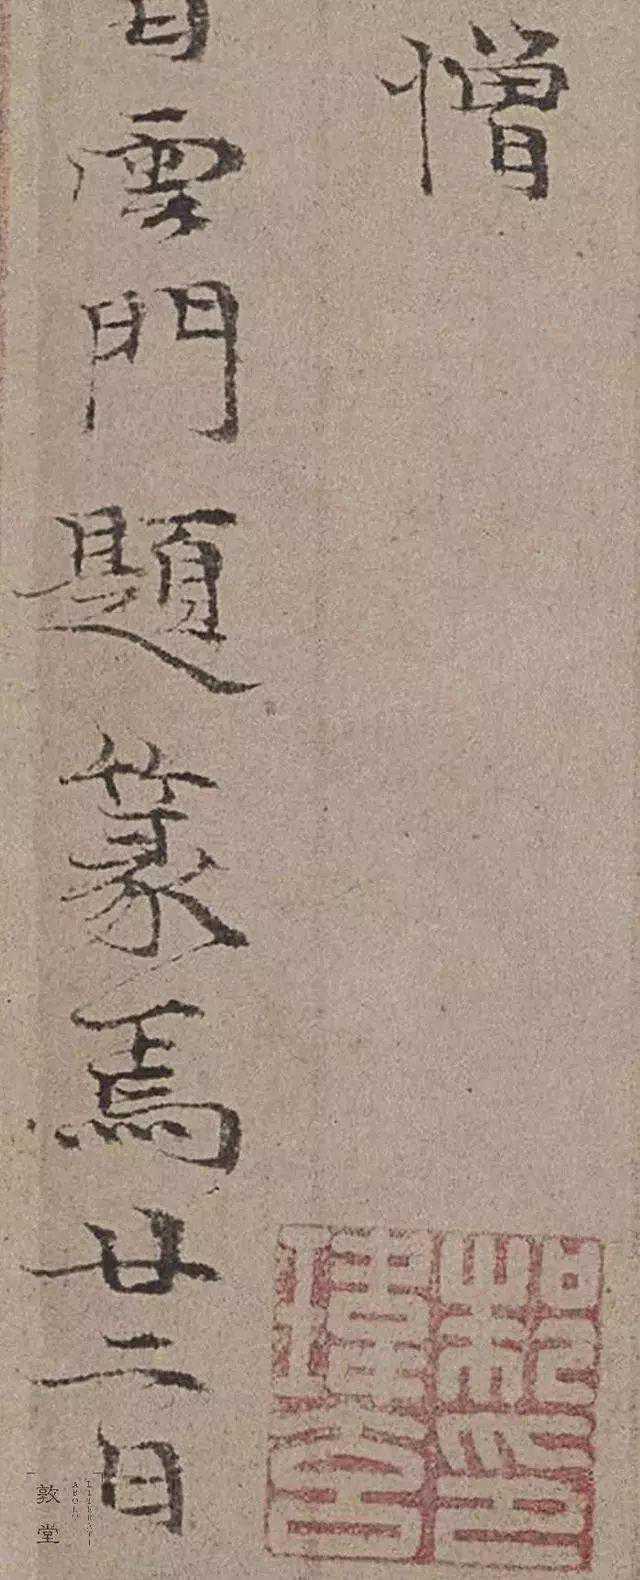 憎
雲門題篆焉廿二日
敦堂